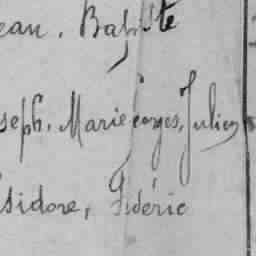 ean. Baptiste
seph. Marie Georges, Julien
Isidore, Frédéric